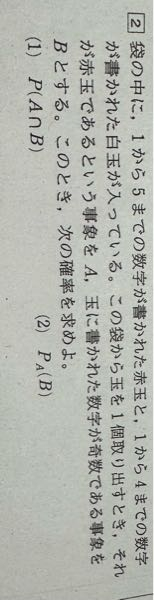 2 袋の中に，1から5までの数字が書かれた赤玉と，1から4までの数字
が書かれた白玉が入っている。この袋から玉を1個取り出すとき，それ
が赤玉であるという事象を A，玉に書かれた数字が奇数である事象を
B とする。このとき，次の確率を求めよ。
(1) P(A∩B) (2) P_A(B)